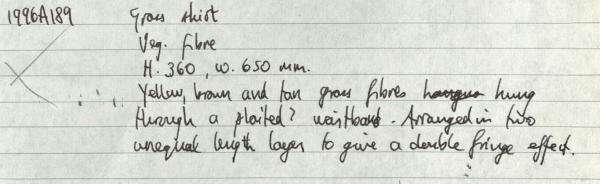 1996A189 Grass skirt
Veg. fibre
H. 360, w. 650 mm.
Yellow, brown and tan grass fibres hung
through a plaited? waistband. Arranged in two
unequal length layers to give a double fringe effect.